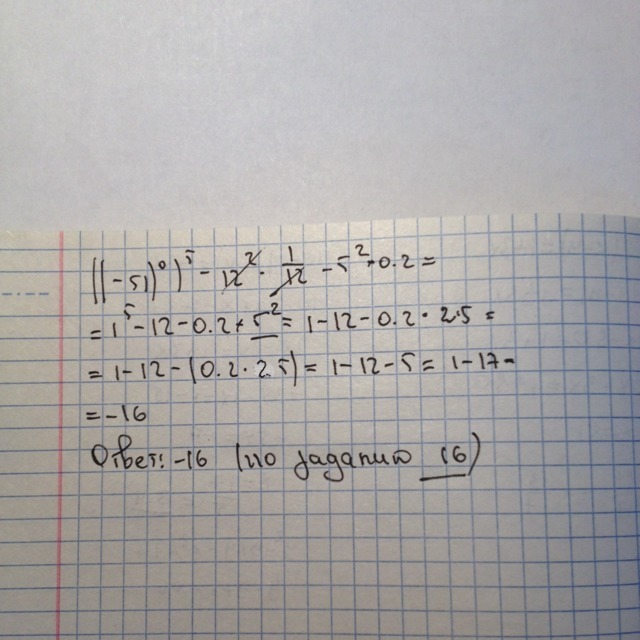 ((-51)⁰)⁵ - 12² · 1/12 - 5² · 0.2 =
= 1⁵ - 12 - 0.2 · 5² = 1 - 12 - 0.2 · 25 =
= 1 - 12 - (0.2 · 25) = 1 - 12 - 5 = 1 - 17 =
= -16
Ответ: -16 (по заданию 16)